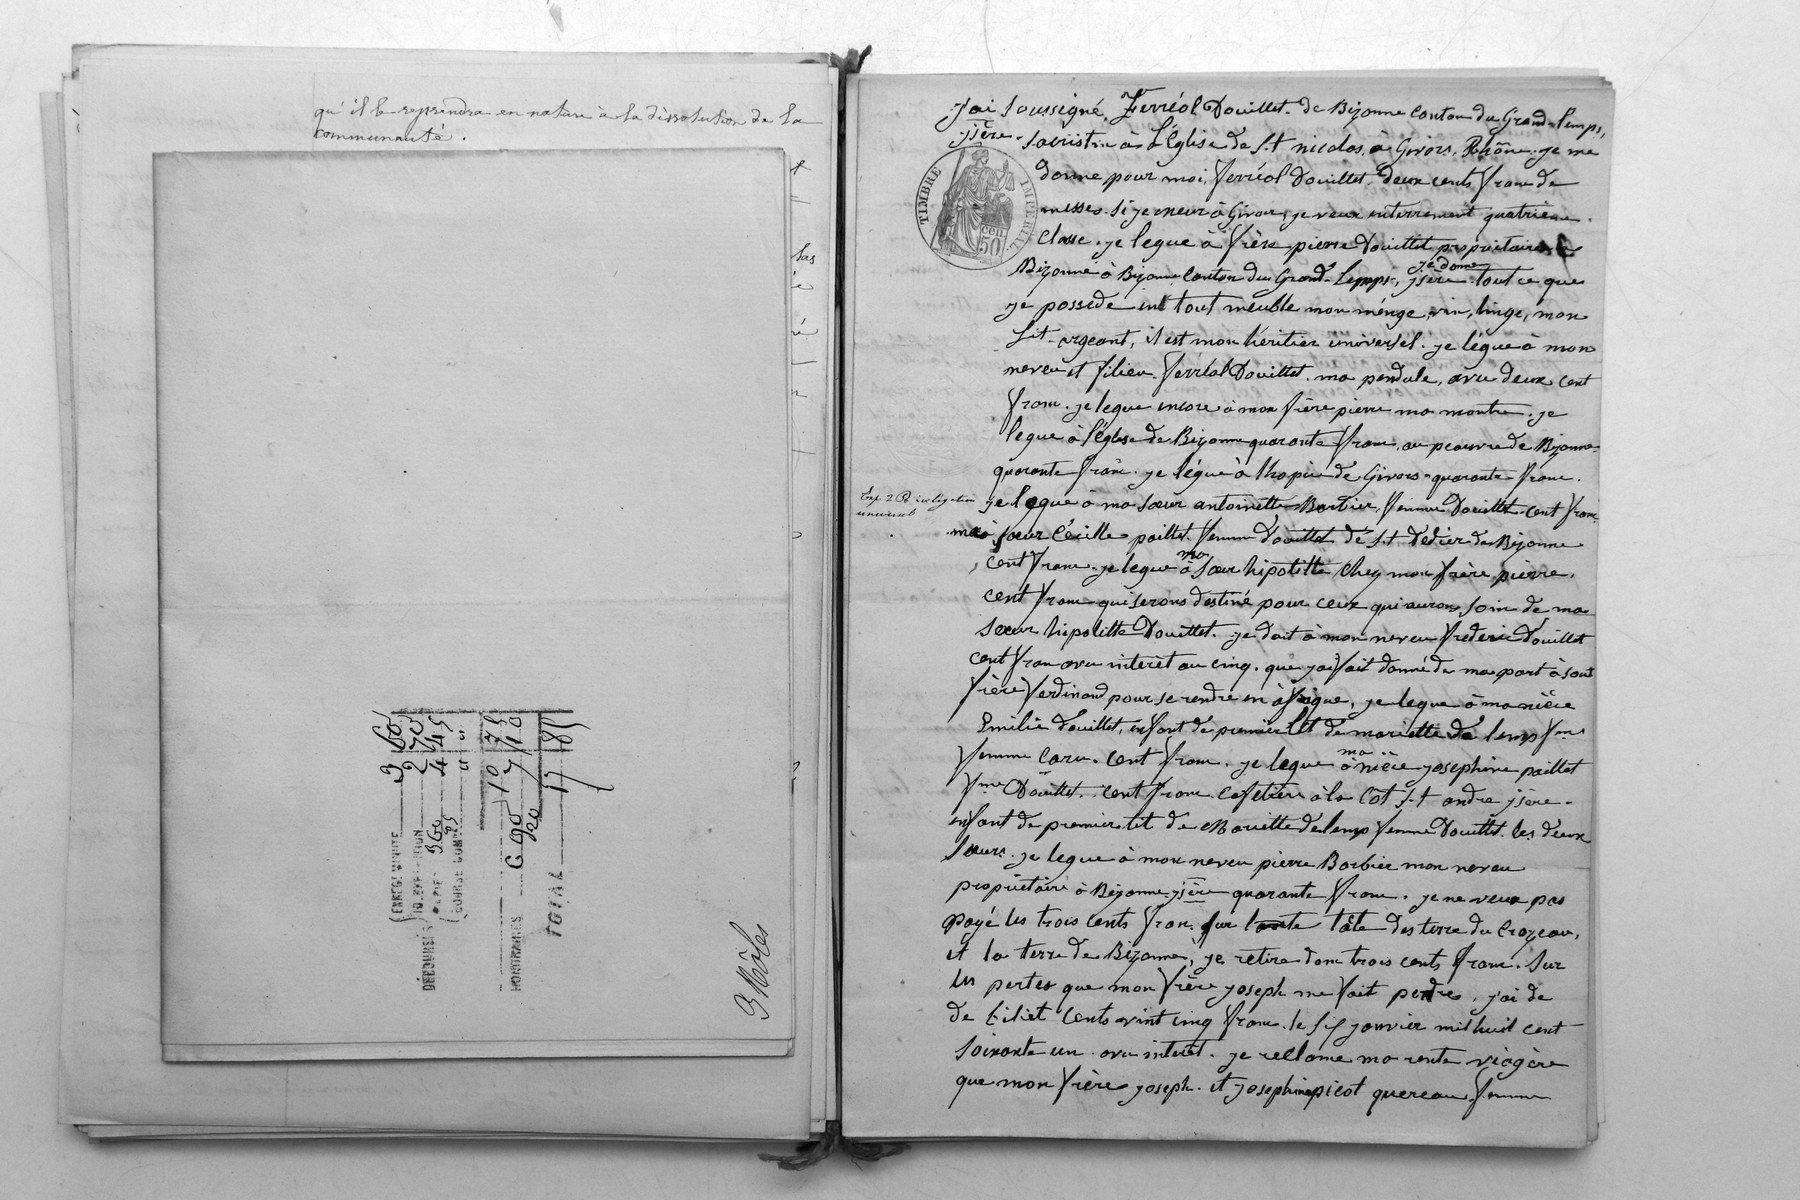 qu'il le reprendra en nature à la dissolution de la
communauté.
3 Rôles
DÉBOURSÉS
ENREGt MINUTE 3 60
2 70
PAPIER 3 60 4 45
HONORAIRES 10 75
7 10
TOTAL 17 85
TIMBRE IMPERIAL
50 cen
j'ai soussigné, Ferréol Douillet de Bizonne canton du Grand-lemps,
jsère. sacristin à L'Eglise de S.t nicolas, à Givors, Rhône. je me
donne pour moi, ferréol Douillet, deux cents franc de
messes. si je meur à Givors, je veux enterrement quatrieme.
classe. je legue à frère pierre Douillet propriétaire
Bizonne à Bizonne canton du Grand-Lemps, jsère je donne tout ce que
je possede tout meuble mon ménge, vin, linge, mon
Lit argeant, il est mon héritier universel. je légue à mon
neveu et filieu ferréol Douillet. ma pendule, avec deux cent
franc. je legue encore à mon frère pierre ma montre. je
legue à l'église de Bizonne quarante franc, au peauvre de Bizonne
quarante franc. je légue à lhopice de Givors quarante franc.
je legue à ma sœur antoinette Barbier, femme Douillet cent franc
ma sœur Cécille paillet femme Douillet de S.t Dedier de Bizonne
cent franc. je legue à ma sœur hipolitte chez mon frère pierre,
cent franc qui serons destiné pour ceux qui aurons soin de ma
sœur hipolitte Douillet. je doit à mon neveu frederic Douillet
cent fran avec interèt au cinq. que jai fait donné de ma part à sont
frère ferdinand pour se rendre en afrique, je legue à ma nièce
Emilie Douillet, enfant de premier lit de mariette de lemp fme
femme cent franc. je legue à ma nièce josephine paillet
fme Douillet. cent franc. cafetière à la Côt S.t andré jsère.
enfant de premier lit de Mariette de lemp femme Douillet. les deux
sœurs. je legue à mon neveu pierre Barbier mon neveu
propriétaire à Bizonne jsère quarante franc. je ne veux pas
payé les trois cents franc, sur tâte des terre du Crozeau,
et la terre de Bizonne, je retire donc trois cents franc. sur
les pertes que mon frère joseph me fait perdre, j'ai de
de biliet cents vint cinq franc. le six janvier mil huit cent
soixante un. avec interèt. je reclame ma rente viagère
que mon frère joseph. et josephine picot femme